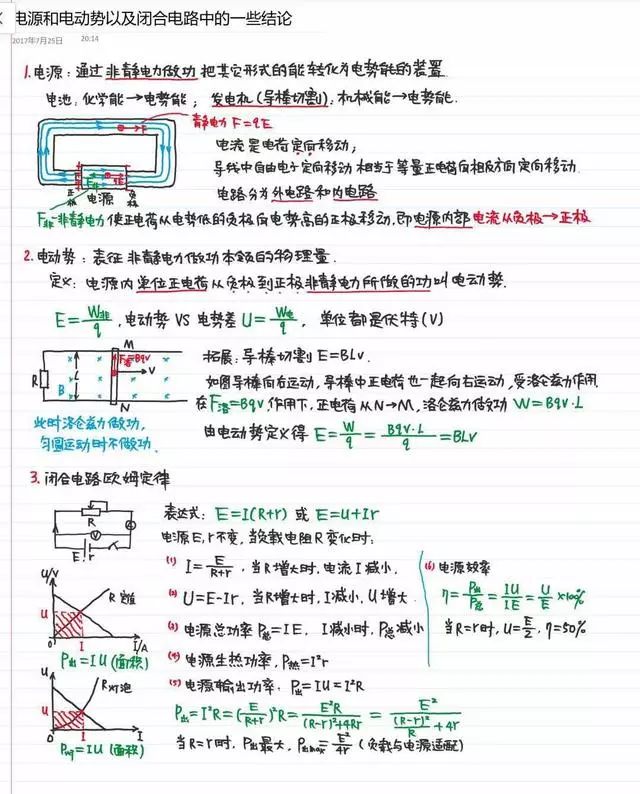 电源和电动势以及闭合电路中的一些结论
2017年7月25日 20:14
1.电源：通过非静电力做功把其它形式的能转化为电势能的装置
电池：化学能→电势能； 发电机(导棒切割)：机械能→电势能.
静电力 F=qE
电流是电荷定向移动；
导线中自由电子定向移动相当于等量正电荷向相反方向定向移动.
电路分为外电路和内电路
正极 电源 负极
F非-非静电力 使正电荷从电势低的负极向电势高的正极移动.即电源内部电流从负极→正极
2.电动势：表征非静电力做功本领的物理量.
定义：电源内单位正电荷从负极到正极非静电力所做的功叫电动势.
E=W非/q , 电动势 VS 电势差 U=W电/q , 单位都是伏特(V)
M
R B L F洛=Bqv V
N
拓展：导棒切割 E=BLv.
如图导棒向右运动,导棒中正电荷也一起向右运动,受洛仑兹力作用
在F洛=Bqv作用下,正电荷从N→M,洛仑兹力做功 W=Bqv·L
此时洛仑兹力做功,
匀圆运动时不做功.
由电动势定义得 E=W/q=Bqv·L/q=BLv
3.闭合电路欧姆定律
R
A
V
E r
表达式：E=I(R+r) 或 E=U+Ir
电源E,r不变,当负载电阻R变化时：
(1) I=E/(R+r) , 当R增大时,电流I减小,
(2) U=E-Ir, 当R增大时,I减小,U增大
(3) 电源总功率P总=IE, I减小时,P总减小
(4) 电源生热功率,P热=I²r
(5) 电源输出功率. P出=IU=I²R
P出=I²R=(E/(R+r))²R=E²R/((R-r)²+4Rr)=E²/((R-r)²/R+4r)
当R=r时,P出最大,P出max=E²/4r (负载与电源适配)
(6) 电源效率
η=P出/P总=IU/IE=U/E×100%
当R=r时,U=E/2,η=50%
U/V
R定值
U
0 I I/A
P出=IU(面积)
U
R灯泡
U
0 I I
=IU(面积)